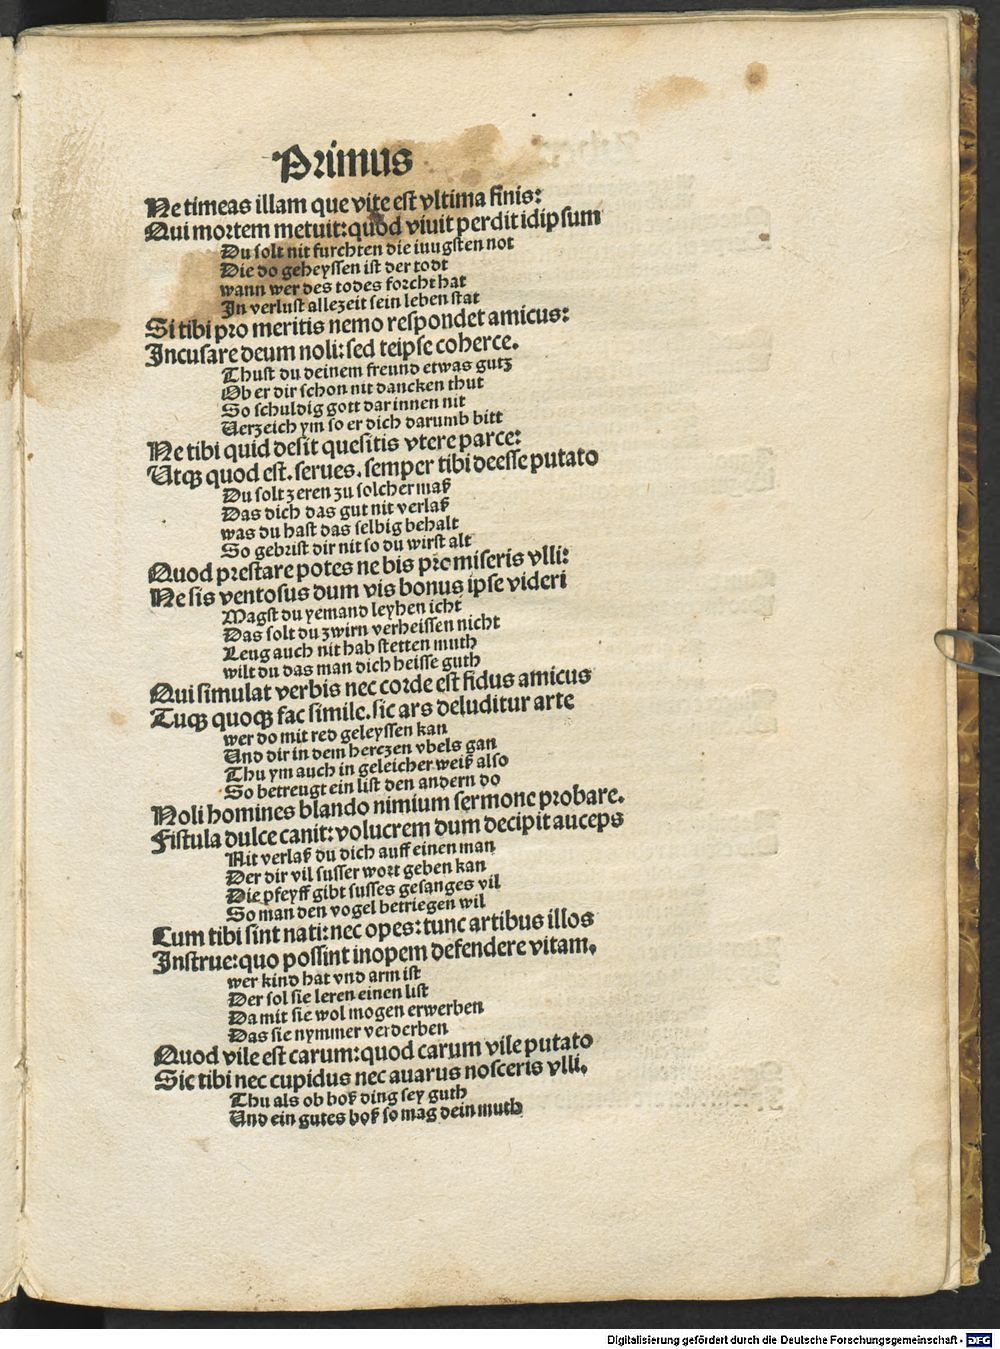 Primus
Ne timeas illam que vite est vltima finis:
Qui mortem metuit: quod viuit perdit idipsum
Du solt nit furchten die iungsten not
Die do geheyssen ist der todt
wann wer des todes forcht hat
In verlust allezeit sein leben stat
Si tibi pro meritis nemo respondet amicus:
Incusare deum noli: sed teipse coherce.
Thust du deinem freund etwas gutz
Ob er dir schon nit dancken thut
So schuldig gott dar innen nit
Uerzeich ym so er dich darumb bitt
Ne tibi quid desit quesitis vtere parce:
Utqꝫ quod est. serues. semper tibi deesse putato
Du solt zeren zu solcher maß
Das dich das gut nit verlaß
was du hast das selbig behalt
So gebrist dir nit so du wirst alt
Quod prestare potes ne bis promiseris vlli:
Ne sis ventosus dum vis bonus ipse videri
Magst du yemand leyhen icht
Das solt du zwirn verheissen nicht
Leug auch nit hab stetten muth
wilt du das man dich heisse guth
Qui simulat verbis nec corde est fidus amicus
Tuqꝫ quoqꝫ fac simile. sic ars deluditur arte
wer do mit red geleyssen kan
Und dir in dem herczen vbels gan
Thu ym auch in geleicher weiß also
So betreugt ein list den andern do
Noli homines blando nimium sermone probare.
Fistula dulce canit: volucrem dum decipit auceps
Nit verlaß du dich auff einen man
Der dir vil susser wort geben kan
Die pfeyff gibt susses gesanges vil
So man den vogel betriegen wil
Cum tibi sint nati: nec opes: tunc artibus illos
Instrue: quo possint inopem defendere vitam.
wer kind hat vnd arm ist
Der sol sie leren einen list
Da mit sie wol mogen erwerben
Das sie nymmer verderben
Quod vile est carum: quod carum vile putato
Sic tibi nec cupidus nec auarus nosceris vlli.
Thu als ob boß ding sey guth
Und ein gutes boß so mag dein muth
Digitalisierung gefördert durch die Deutsche Forschungsgemeinschaft - DFG